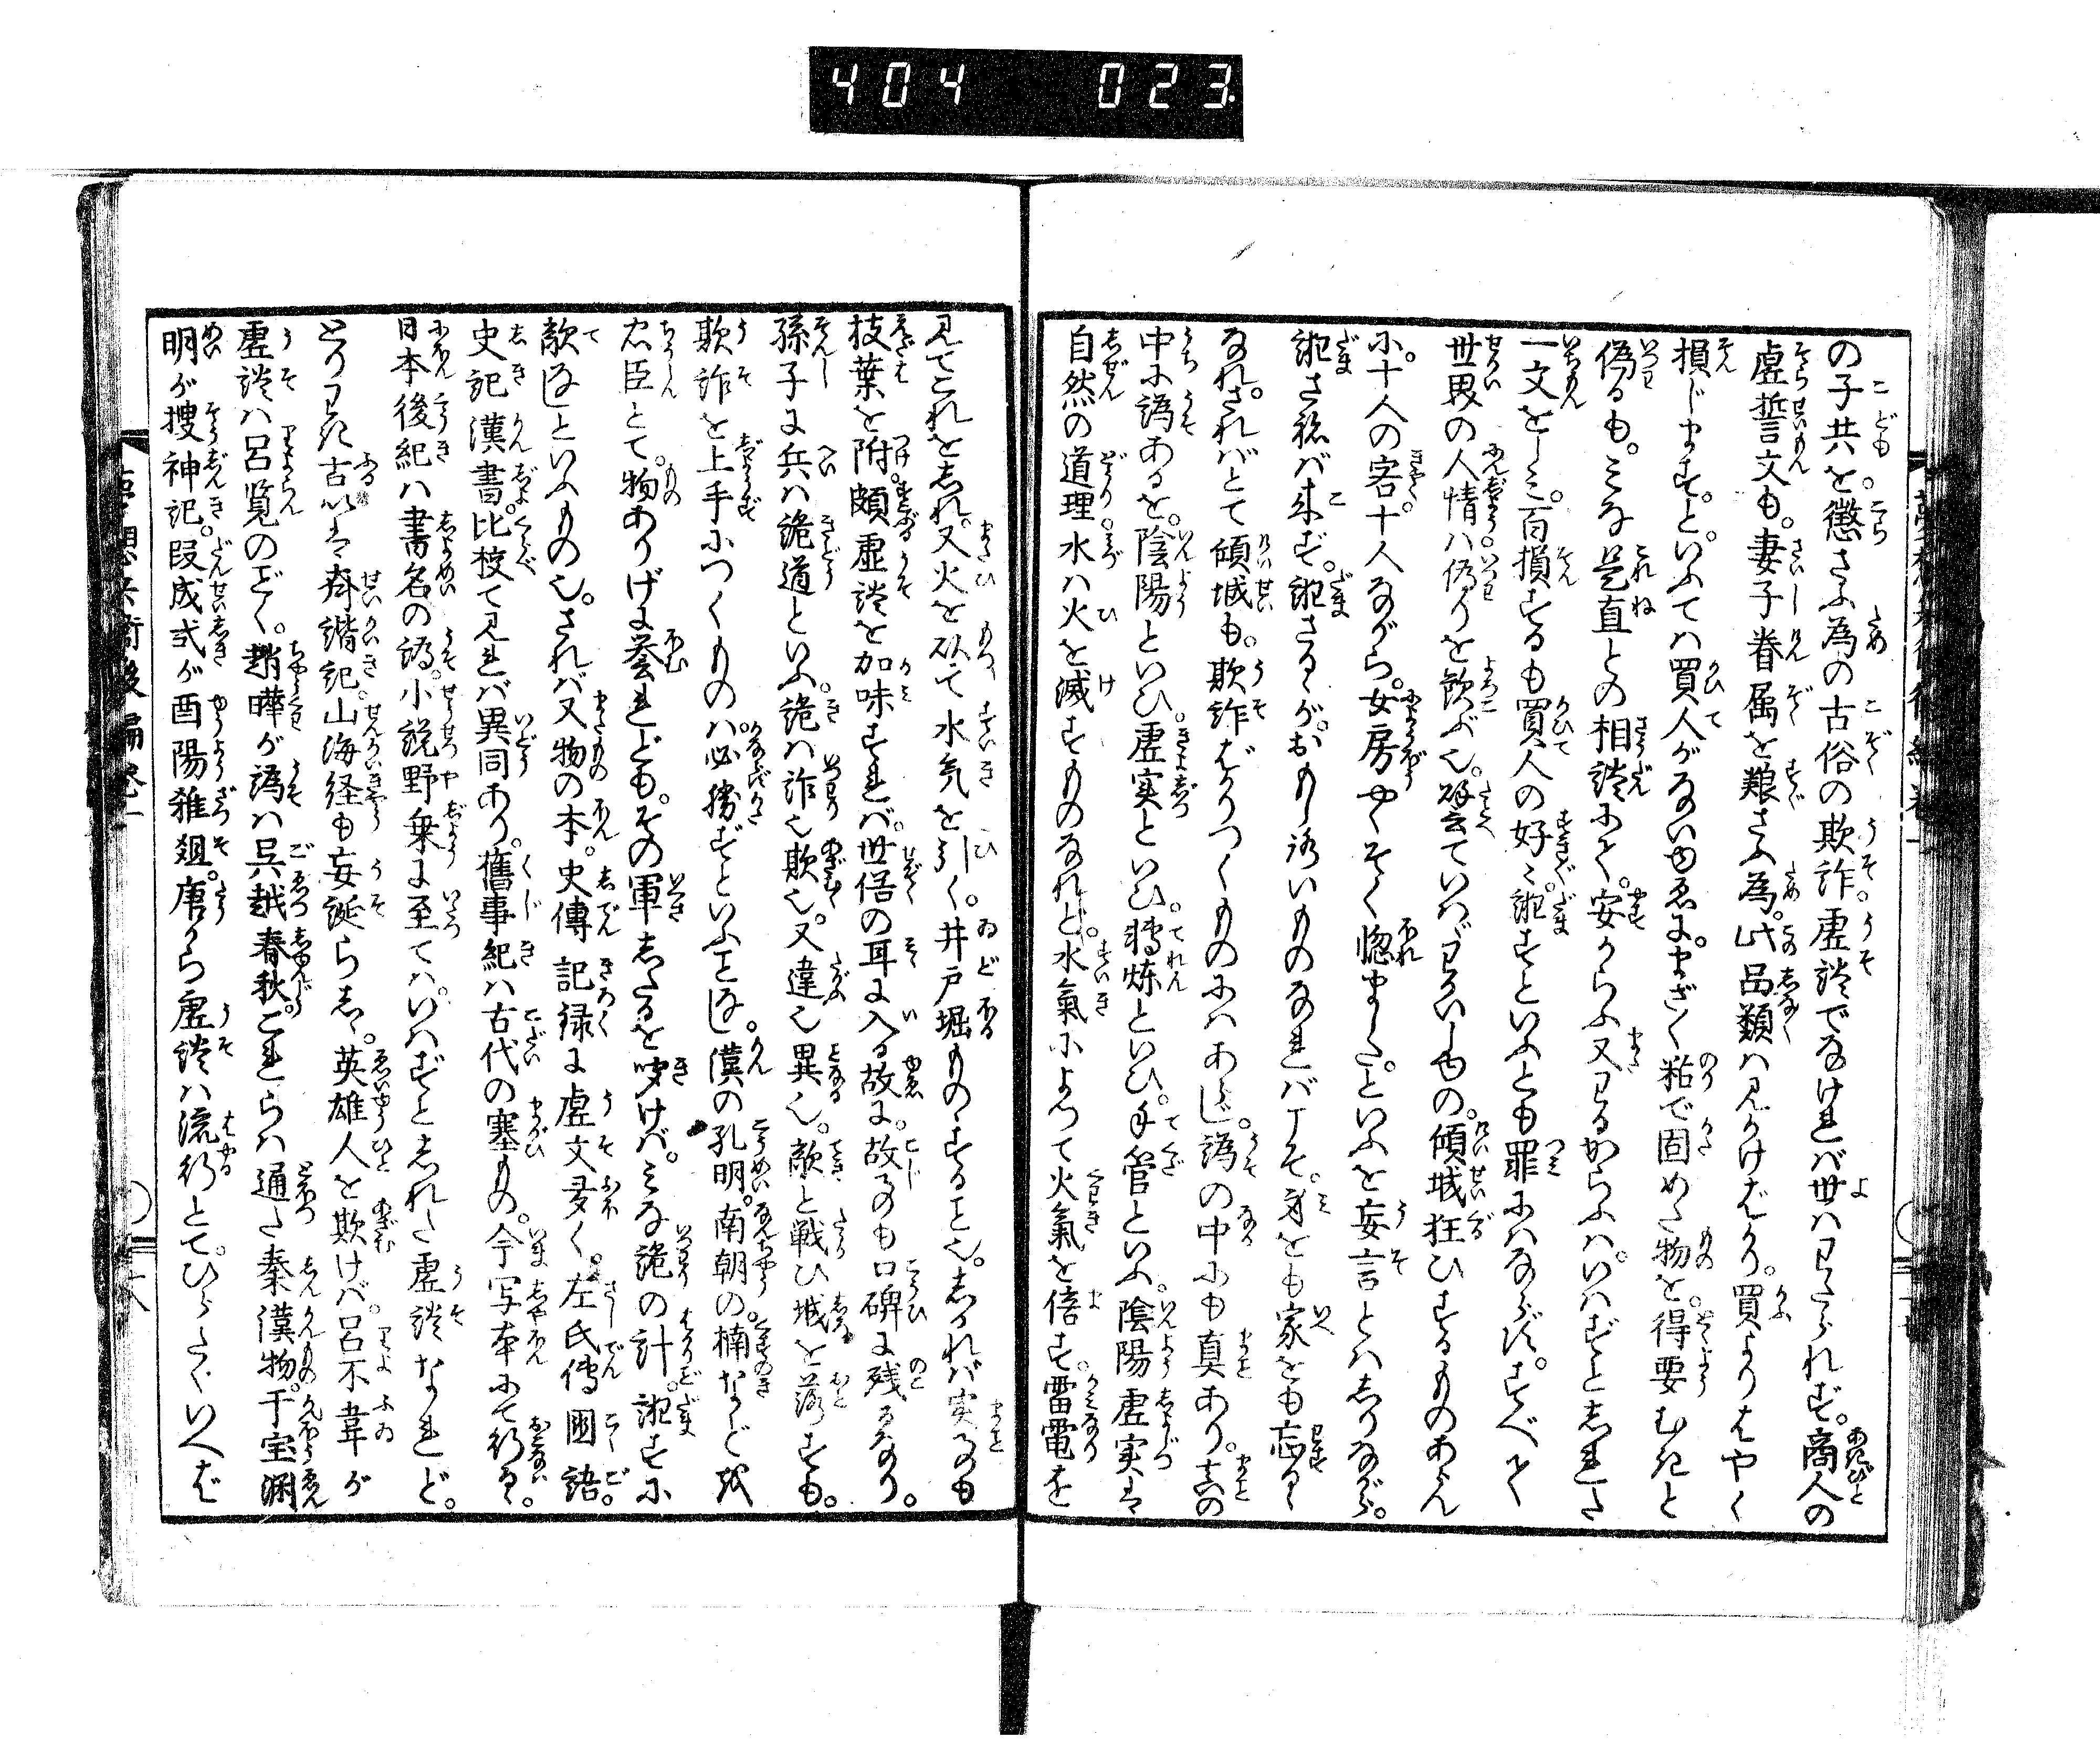 404 023
の子共を。懲さふ為の古俗の欺詐。虚談でなければ世はわたられず。商人の
虚誓文も。妻子眷属を粮さふ為。此品類は見かけばかり。買よりはやく
損じます。と。いふては買人がないゆゑに。まざ〳〵粘で固めた物を。得要むきと
偽るも。みな是直との相談にて。安からふ又わるからふは。いはずとしれた
一文をしみ。百損するも買人の好々。誑すといふとも罪にはならず。すべて
世界の人情は偽りを歓ぶ也。譬ていはゞわるいもの。傾城狂ひするものあらん
に。十人の客十人ながら。女房やくそく惚ました。といふを妄言とはしりながら。
誑さねば来ず。誑さるゝがおもしろいものなればこそ。身をも家をも忘るゝ
なれ。さればとて傾城も。欺詐ばかりつくものにはあらじ。譌の中にも真あり。真の
中に譌あるを。陰陽といひ。虚実といひ。轉煉といひ。手管といふ。陰陽虚実は
自然の道理。水は火を滅すものなれど。水氣によつて火氣を倍す。雷電を
見てこれをしれ。又火を以て水気を引く。井戸堀ものゝすること也。しかれば実るのも
枝葉を附。頗虚談を加味すれば。世俗の耳に入る故に。故るのも口碑に残るなり。
孫子に兵は詭道といふ。詭は詐也欺也。又違也異也。敵と戦ひ城を落すも。
欺詐を上手につくものは。必勝ずといふことなし。漢の孔明。南朝の楠なども
忠臣とて。物ありげに誉れども。その軍したるを聞けば。みな詭の計。誑すに
敵なしといふもの也。されば又物の本。史傳記録に虚文多く。左氏傳國語。
史記漢書。比挍て見れば異同あり。舊事紀は古代の塞もの。今写本にて行るゝ。
日本後紀は書名の譌。小説野乗に至ては。いはずとしれた虚談なれど。
とりわき古いは斉諧記。山海経も妄誕らし。英雄人を欺けば。呂不韋が
虚談は呂覧のごとく。趙曄が譌は呉越春秋。これらは通た秦漢物。干宝淵
明が捜神記。段成式が酉陽雑俎。唐から虚談は流行とて。ひらたくいへば